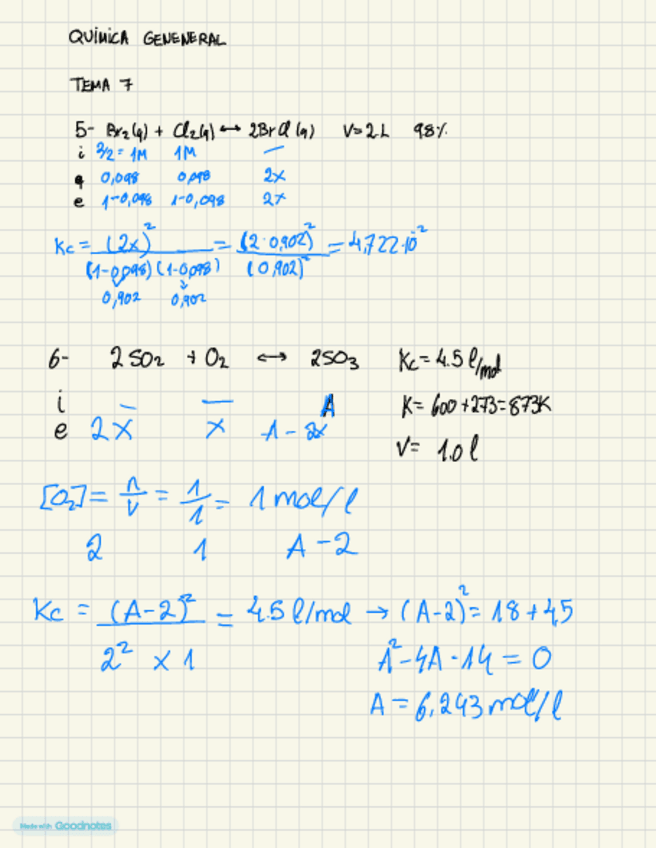 QUÍMICA GENENERAL
TEMA 7
5- Br₂(g) + Cl₂(g) ↔ 2BrCl(g) V=2L 98%
i 2/2 = 1M 1M —
q 0,098 0,098 2x
e 1-0,098 1-0,098 2x
Kc = (2x)² / (1-0,098)(1-0,098) = (2·0,902)² / (0,902)² = 4,722·10⁻²
0,902 0,902
6- 2SO₂ + O₂ ↔ 2SO₃ Kc = 4.5 l/mol
i — — A K = 600+273=873K
e 2x x A-2x V= 1.0 l
[O₂] = n/V = 1/1 = 1 mol/l
2 1 A-2
Kc = (A-2)² / 2² x 1 = 4.5 l/mol → (A-2)² = 18+4,5
A²-4A-14 = 0
A = 6,243 mol/l
Made with Goodnotes